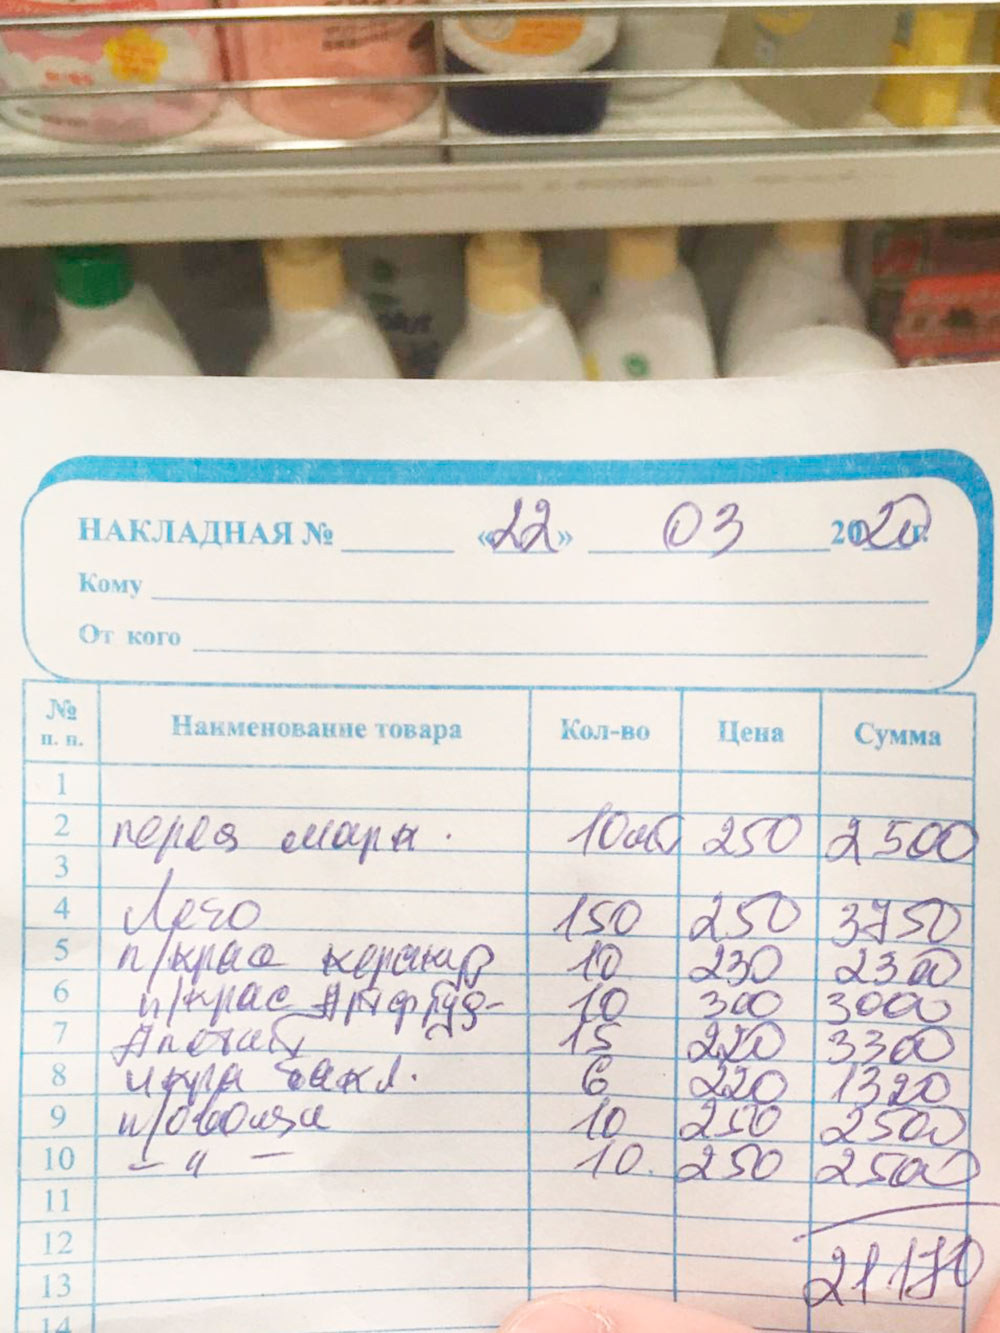 НАКЛАДНАЯ № «22» 03 2020 г.
Кому
От кого
№ п. п. Наименование товара Кол-во Цена Сумма
1
2 перец мари. 10шт 250 2500
3
4 Лечо 150 250 3750
5 п/крас 10 230 2300
6 и/крас 10 300 3000
7 15 220 3300
8 икра бакл. 6 220 1320
9 и/овощи 10 250 2500
10 – " – 10. 250 2500
11
12
13 21170
14